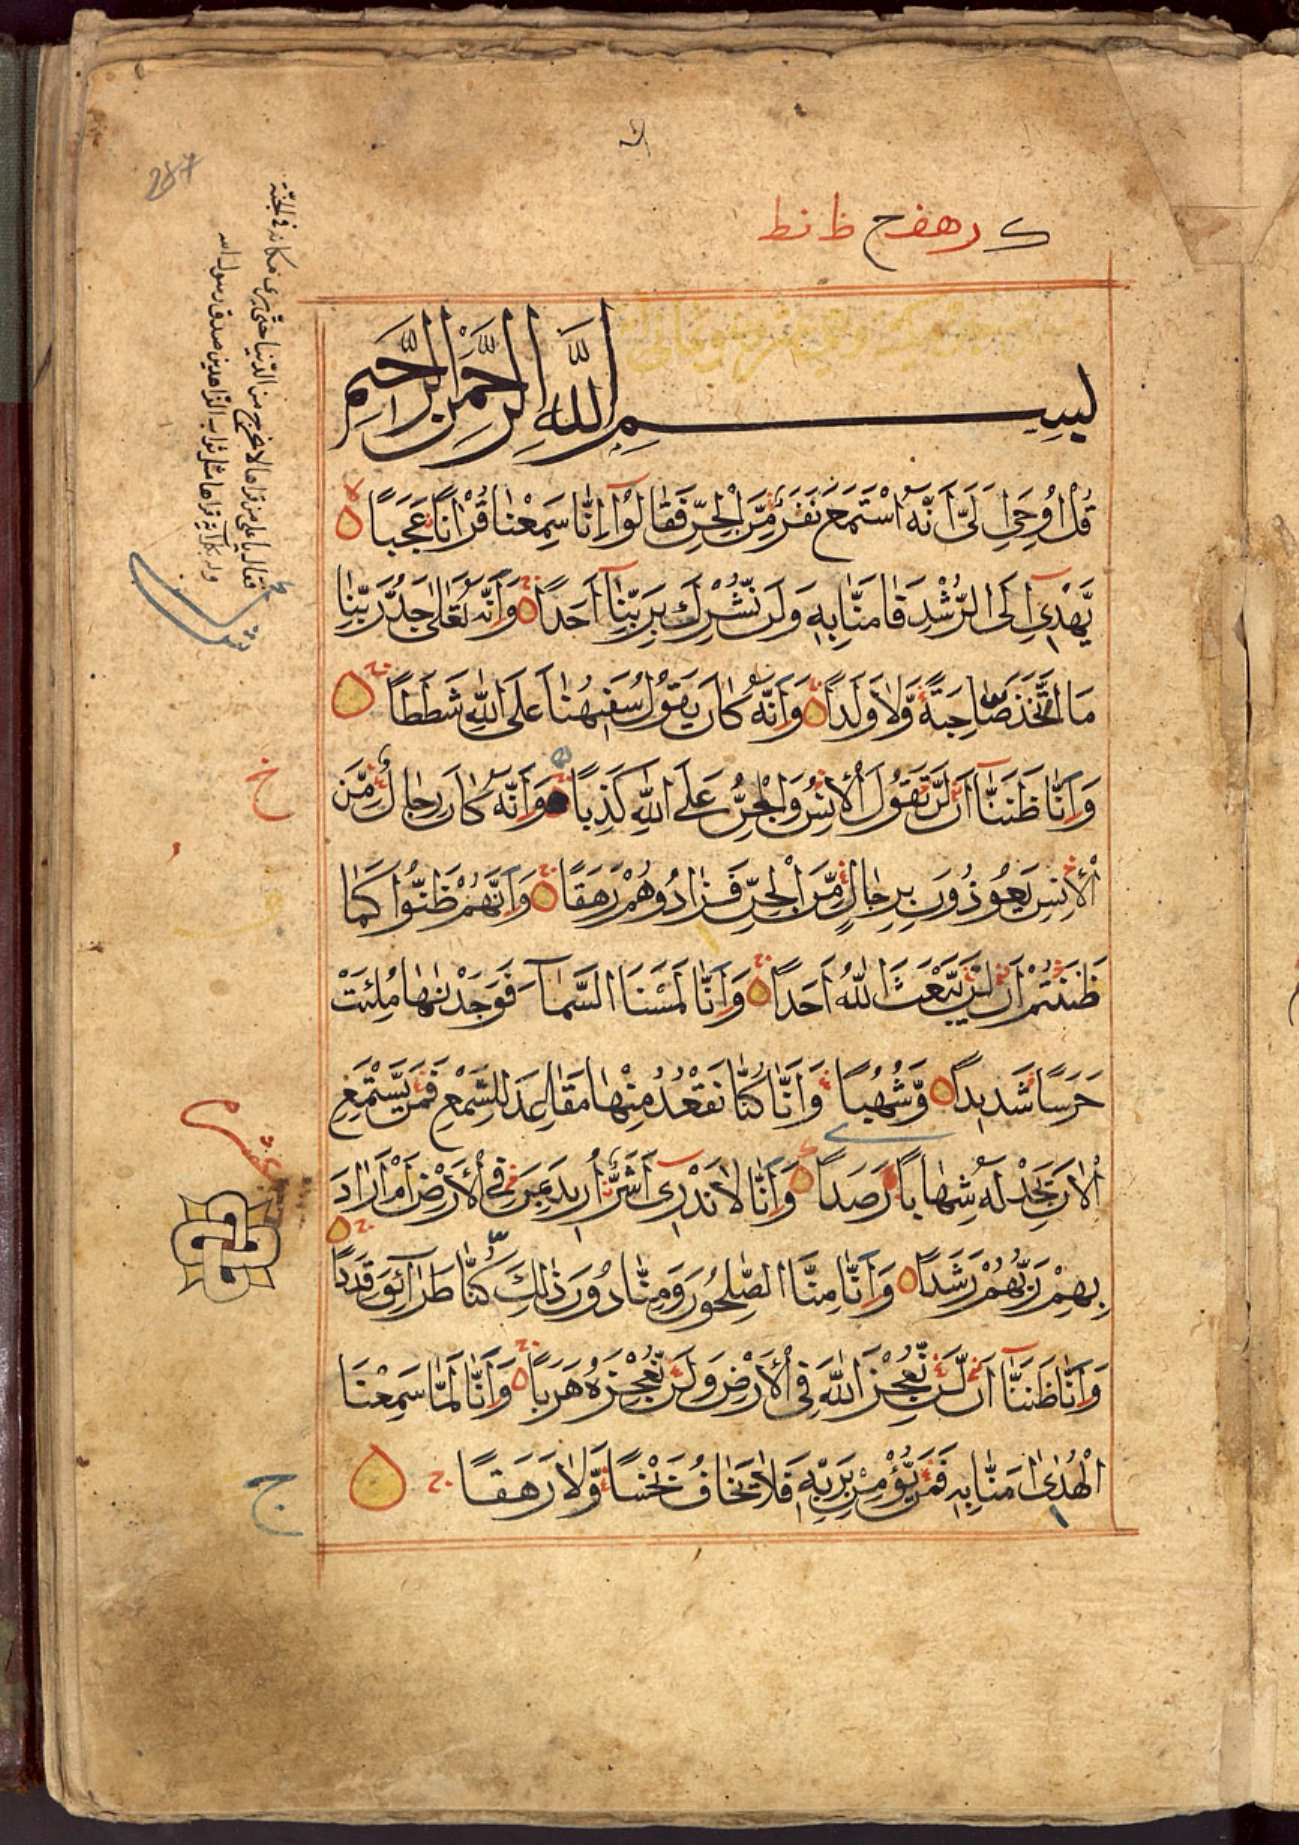 ك رهفح ظ نط
بِسْمِ اللَّهِ الرَّحْمَنِ الرَّحِيمِ
قُلْ اُوحِيَ اِلَيَّ اَنَّهُ اسْتَمَعَ نَفَرٌ مِّنَ الْجِنِّ فَقَالُوٓا اِنَّا سَمِعْنَا قُرْاٰنًا عَجَبًا
يَّهْدِىٓ اِلَى الرُّشْدِ فَاٰمَنَّا بِهٖ وَلَنْ نُّشْرِكَ بِرَبِّنَآ اَحَدًا وَاَنَّهُ تَعٰلٰى جَدُّ رَبِّنَا
مَا اتَّخَذَ صَاحِبَةً وَّلَا وَلَدًا وَاَنَّهُ كَانَ يَقُولُ سَفِيهُنَا عَلَى اللّٰهِ شَطَطًا
وَاَنَّا ظَنَنَّآ اَنْ لَّنْ تَقُولَ الْاِنْسُ وَالْجِنُّ عَلَى اللّٰهِ كَذِبًا وَاَنَّهُ كَانَ رِجَالٌ مِّنَ
الْاِنْسِ يَعُوذُونَ بِرِجَالٍ مِّنَ الْجِنِّ فَزَادُوهُمْ رَهَقًا وَاَنَّهُمْ ظَنُّوا كَمَا
ظَنَنْتُمْ اَنْ لَّنْ يَّبْعَثَ اللّٰهُ اَحَدًا وَاَنَّا لَمَسْنَا السَّمَآءَ فَوَجَدْنٰهَا مُلِئَتْ
حَرَسًا شَدِيدًا وَّشُهُبًا وَاَنَّا كُنَّا نَقْعُدُ مِنْهَا مَقَاعِدَ لِلسَّمْعِ فَمَنْ يَّسْتَمِعِ
الْاٰنَ يَجِدْ لَهُ شِهَابًا رَّصَدًا وَاَنَّا لَا نَدْرِىٓ اَشَرٌّ اُرِيدَ بِمَنْ فِى الْاَرْضِ اَمْ اَرَادَ
بِهِمْ رَبُّهُمْ رَشَدًا وَاَنَّا مِنَّا الصّٰلِحُونَ وَمِنَّا دُونَ ذٰلِكَ كُنَّا طَرَآئِقَ قِدَدًا
وَاَنَّا ظَنَنَّآ اَنْ لَّنْ نُّعْجِزَ اللّٰهَ فِى الْاَرْضِ وَلَنْ نُّعْجِزَهُ هَرَبًا وَاَنَّا لَمَّا سَمِعْنَا
الْهُدٰىٓ اٰمَنَّا بِهٖ فَمَنْ يُّؤْمِنْ بِرَبِّهٖ فَلَا يَخَافُ بَخْسًا وَّلَا رَهَقًا
فقال يا على من قراها لا يخرج من الدنيا حتى يرى مكانه فى الجنة
وله بكل آية قراها مثل ثواب الزاهدين صدق رسول الله
خ
ج